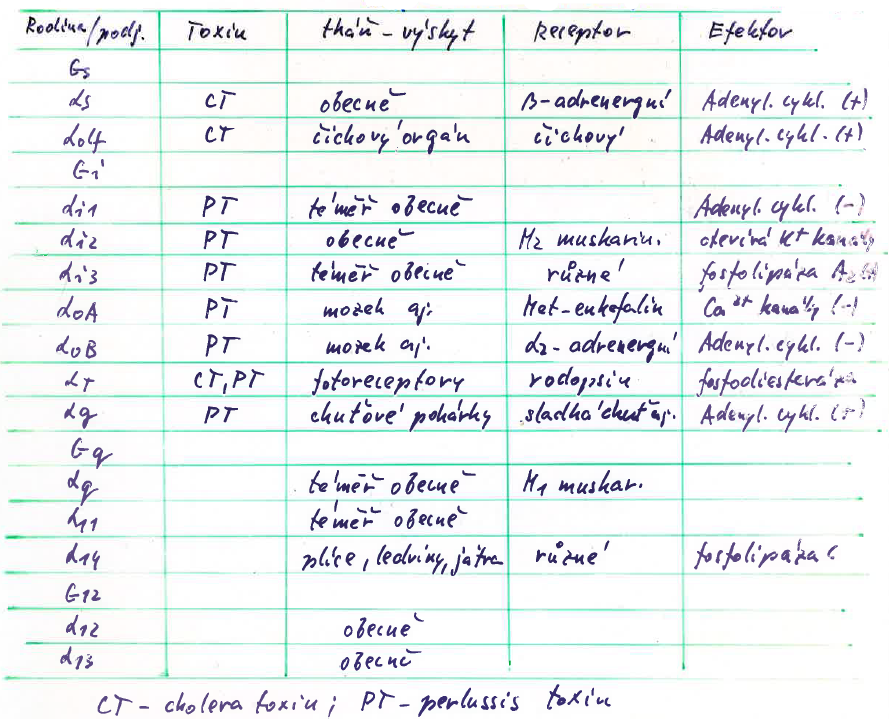 Rodina/podj. Toxin tkáň-výskyt Receptor Efektor
Gs
αs CT obecně β-adrenergní Adenyl. cykl. (+)
αolf CT čichový orgán čichový Adenyl. cykl. (+)
Gi
αi1 PT téměř obecně Adenyl. cykl. (-)
αi2 PT obecně M2 muskarin. otevírá K+ kanály
αi3 PT téměř obecně různé fosfolipáza A2
αoA PT mozek aj. Met-enkefalin Ca2+ kanály (-)
αoB PT mozek aj. α2-adrenergní Adenyl. cykl. (-)
αT CT, PT fotoreceptory rodopsin fosfodiesteráza
αg PT chuťové pohárky sladká chuť aj. Adenyl. cykl.
Gq
αq téměř obecně M1 muskar.
α11 téměř obecně
α14 plíce, ledviny, játra různé fosfolipáza C
G12
α12 obecně
α13 obecně
CT - cholera toxin; PT - pertussis toxin